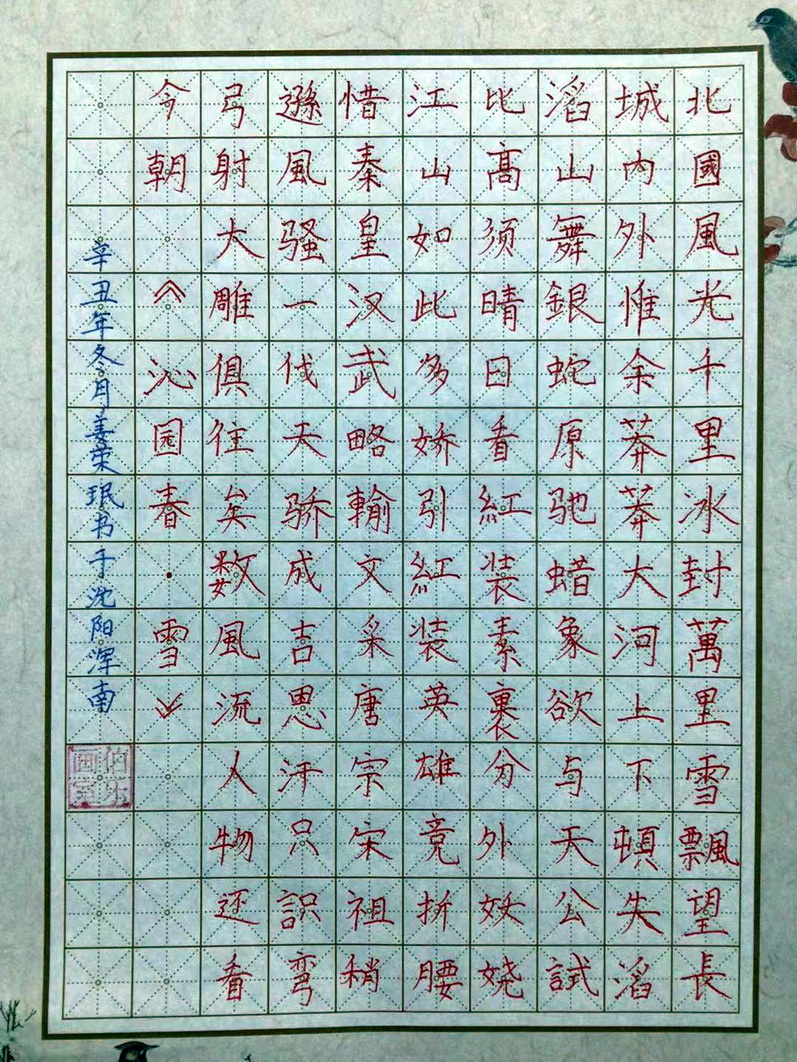 北國風光千里冰封萬里雪飄望長
城内外惟余莽莽大河上下頓失滔
滔山舞銀蛇原驰蜡象欲与天公試
比高须晴日看紅装素裹分外妖娆
江山如此多娇引紅装英雄竞折腰
惜秦皇汉武略輸文采唐宗宋祖稍
遜風骚一伐天骄成吉思汗只識弯
弓射大雕俱往矣数風流人物还看
今朝《沁园春·雪》
辛丑年冬月姜荣珉书于沈阳浑南